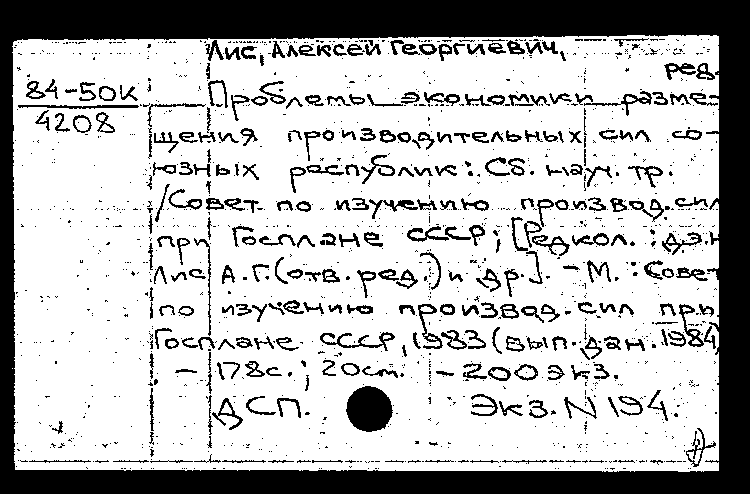 Лис, Алексей Георгиевич,
ред.
84-50к
4208
Проблемы экономики разме-
щения производительных сил со-
юзных республик: Сб. науч. тр.
/Совет по изучению производ. сил
при Госплане СССР; [Редкол.: д.э.н
Лис А.Г. (отв. ред.) и др.]. - М.: Совет
по изучению производ. сил при
Госплане СССР, 1983 (вып. дан. 1984)
- 178с.; 20см. - 200 экз.
ДСП. Экз. N 194.